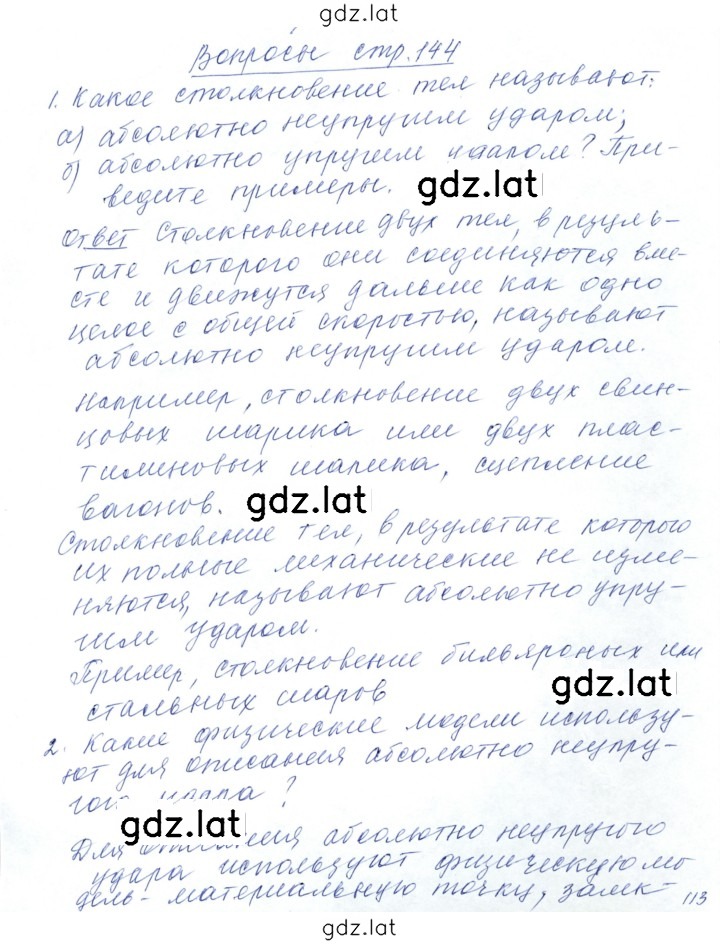 gdz.lat
Вопросы стр. 144
1. Какое столкновение тел называют:
а) абсолютно неупругим ударом;
б) абсолютно упругим ударом? При-
ведите примеры. gdz.lat
Ответ Столкновение двух тел, в резуль-
тате которого они соединяются вме-
сте и движутся дальше как одно
целое с общей скоростью, называют
абсолютно неупругим ударом.
Например, столкновение двух свин-
цовых шарика или двух плас-
тилиновых шарика, сцепление
вагонов. gdz.lat
Столкновение тел, в результате которого
их полные механические не изме-
няются, называют абсолютно упру-
гим ударом.
Пример, столкновение бильярдных или
стальных шаров gdz.lat
2. Какие физические модели использу-
ют для описания абсолютно неупру-
гого удара?
gdz.lat
Для описания абсолютно неупругого
удара используют физическую мо
дель - материальную точку, замк-
113
gdz.lat